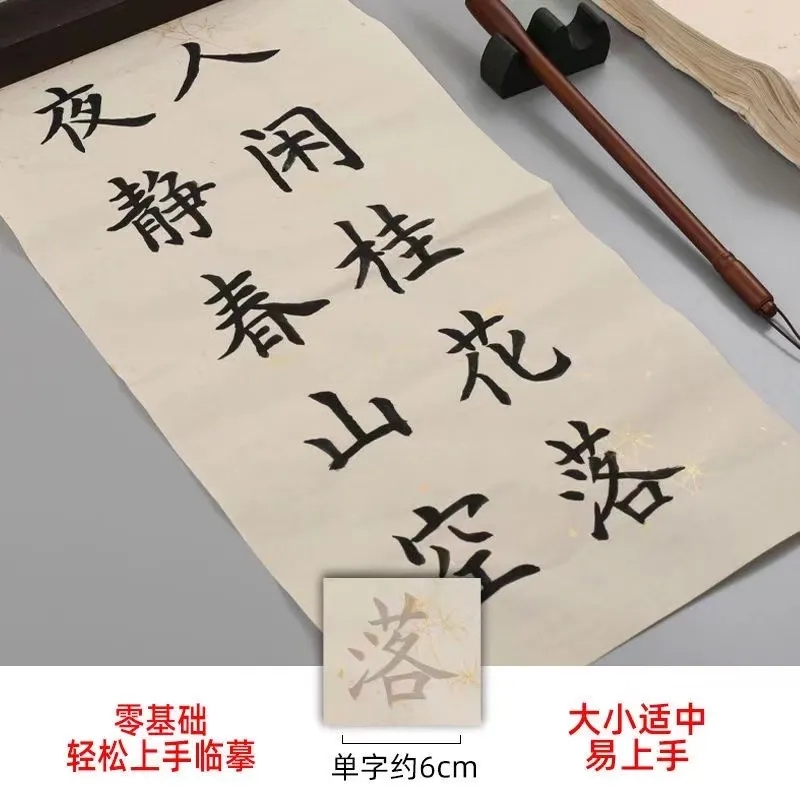 人闲桂花落
夜静春山空
落
零基础
轻松上手临摹
单字约6cm
大小适中
易上手